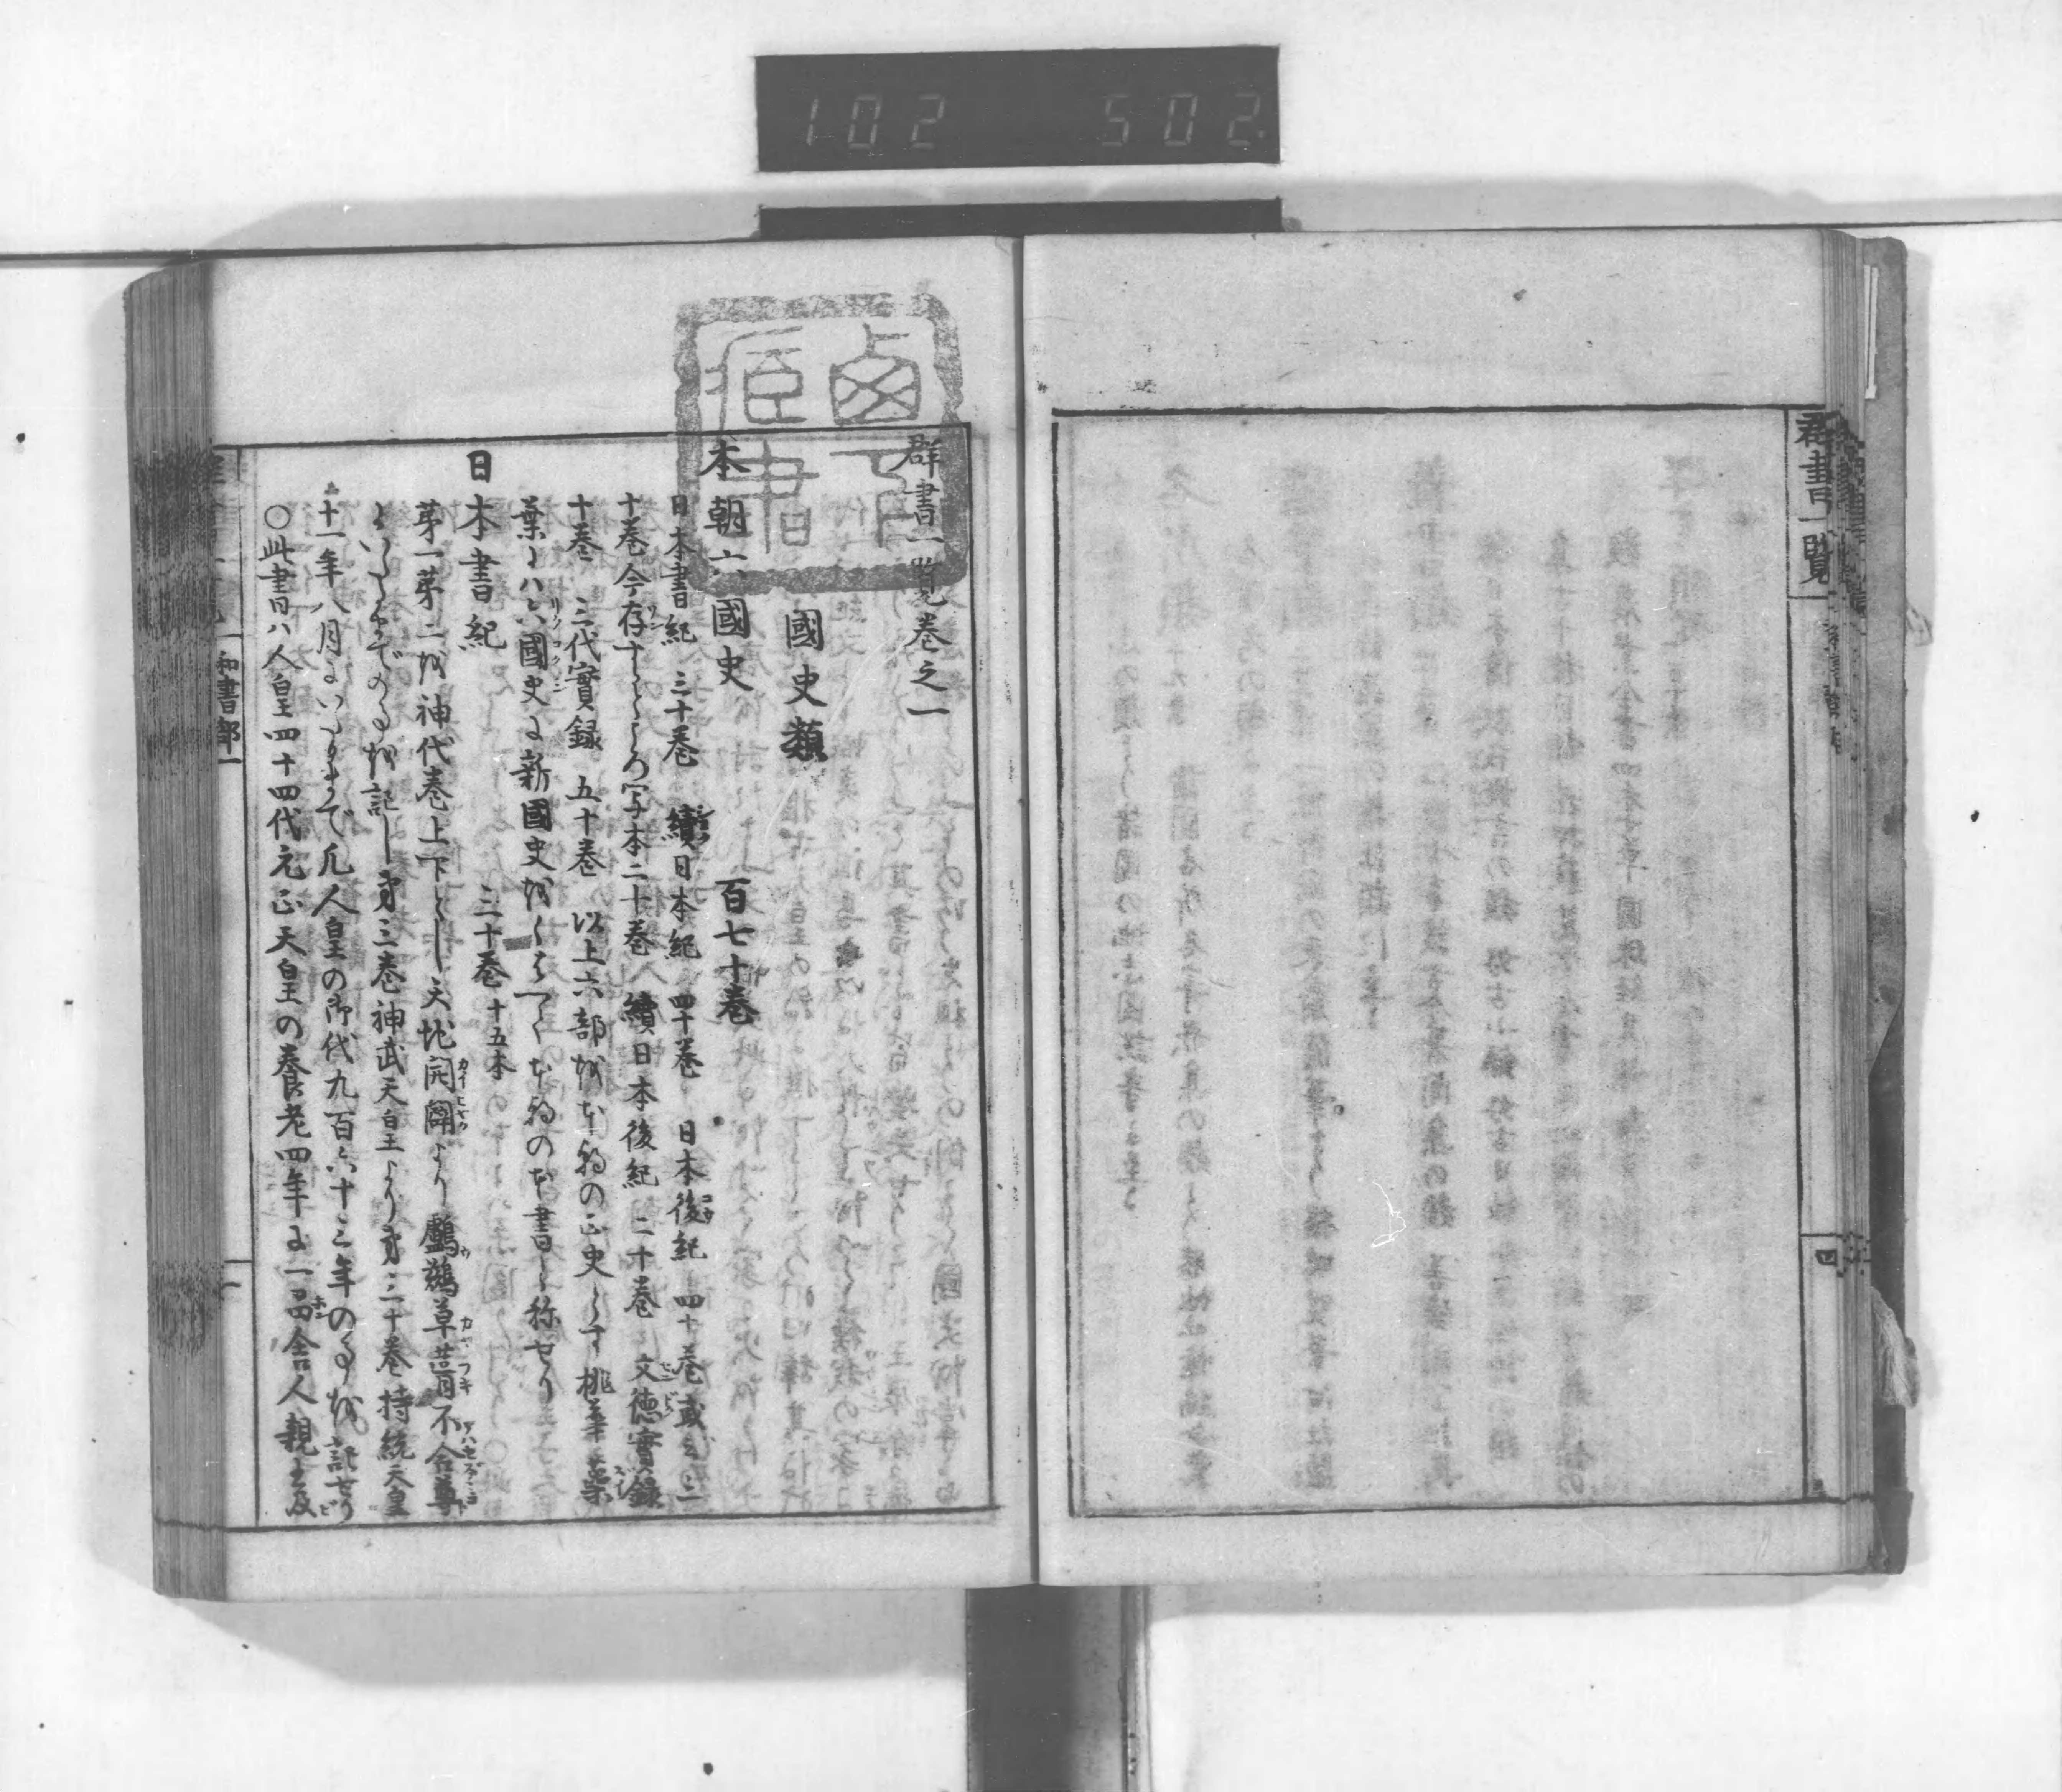 102 502
群書一覧
四
群書一覧巻之一
國史類
本朝六國史 百七十巻
日本書紀 三十巻 續日本紀 四十巻 日本後紀 四十巻或云三
十巻今存するところ写本二十巻 續日本後紀 二十巻 文徳實録
十巻 三代實録 五十巻 以上六部を本朝の正史とす桃華蘂
葉には六國史に新國史をくはへて本朝の本書と称せり
日本書紀 三十巻 十五本
第一第二を神代巻上下とし天地開闢より鸕鷀草葺不合尊
にいたるまでの事を記し第三巻神武天皇より第三十巻持統天皇
十一年八月にいたるまで凡人皇の御代九百六十三年の事を記せり
〇此書ハ人皇四十四代元正天皇の養老四年に一品舎人親王
和書部一
一